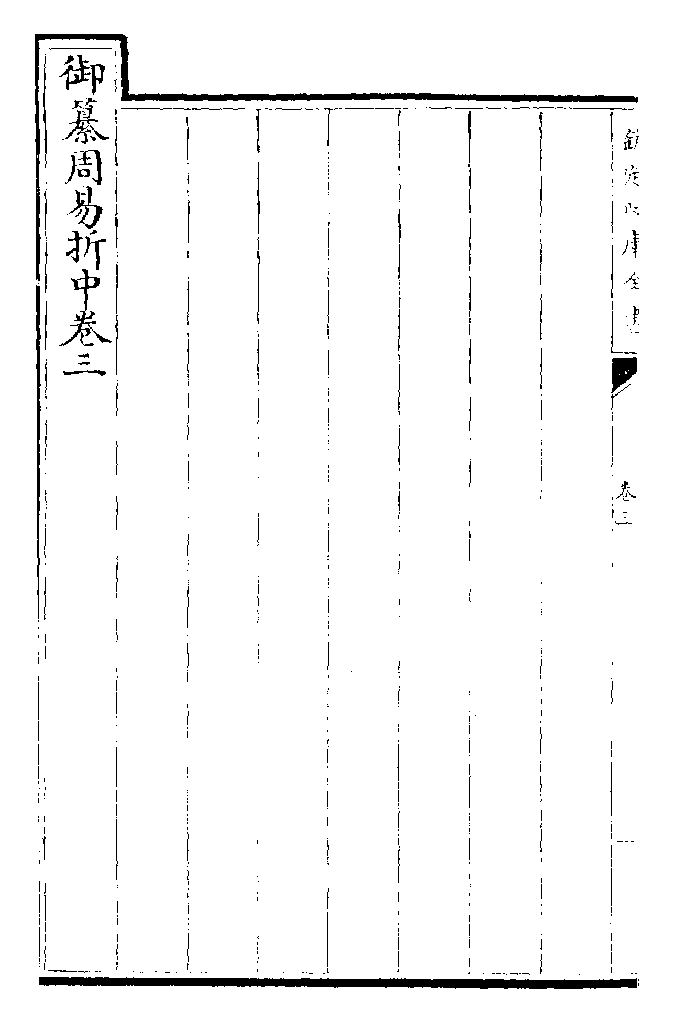 欽定四庫全書
卷三
御纂周易折中卷三